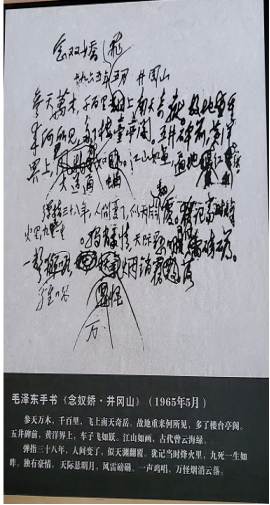 念奴娇
一九六五年五月 井冈山
参天万木，千百里 上南天奇岳，故地重
来何所见，多了楼台亭阁。五井碑前，黄洋
界上， 江山如画
弹指三十八年，人间变了，
火里九死一生
独有豪情，天际
烟消
万怪
毛泽东手书《念奴娇·井冈山》（1965年5月）
参天万木，千百里，飞上南天奇岳。故地重来何所见，多了楼台亭阁。
五井碑前，黄洋界上，车子飞如跃。江山如画，古代曾云海绿。
弹指三十八年，人间变了，似天渊翻覆。犹记当时烽火里，九死一生如
昨。独有豪情，天际悬明月，风雷磅礴。一声鸡唱，万怪烟消云落。